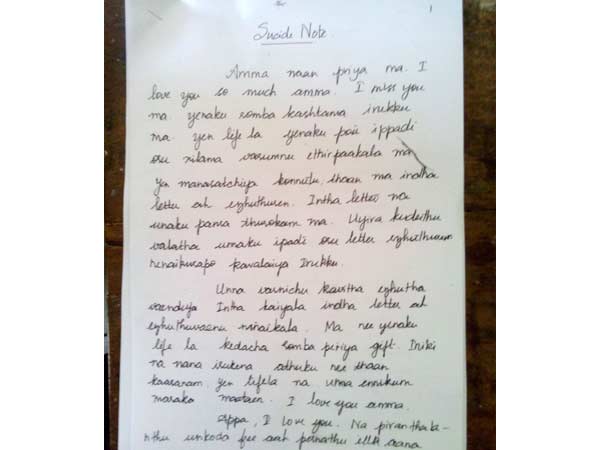 1
Sucide Note
Amma naan priya ma. I
love you so much amma. I miss you
ma yenaku romba kashtama irukku
ma yen life la yenaku poii ippadi
oru nilama varumnu ethirpaakala ma
yen manasatchiya konnutu thaan ma indha
letter ah ezhuthuren. Intha letter na
unaku panra throkam ma. Uyira kuduthu
valatha unaku ipadi oru letter ezhuthurom
nenaikurapo kavalaiya Irukku.
Unna varnichu kavitha ezhutha
vaendiya Intha kaiyala indha letter ah
ezhuthuvaenu ninaikala. Ma nee yenaku
life la kedacha romba periya gift. Iniki
na nana irukena athuku nee thaan
kaaranam yen lifela na unna ennikum
maraka maataen. I love you amma.
Appa, I love you. Na pirantha la-
nthu unkoda